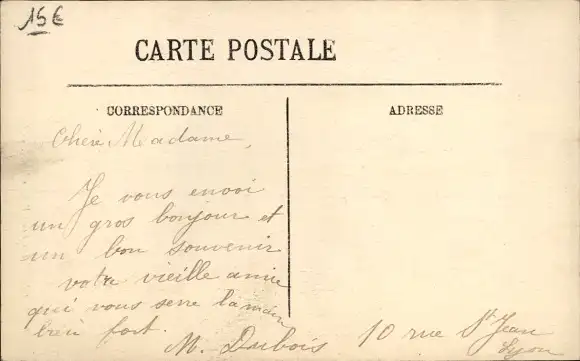 15€
CARTE POSTALE
CORRESPONDANCE
ADRESSE
Chère Madame,
Je vous envoi
un gros bonjour et
un bon souvenir
votre vieille amie
qui vous serre la main
bien fort.
M. Darbois 10 rue St Jean
Lyon